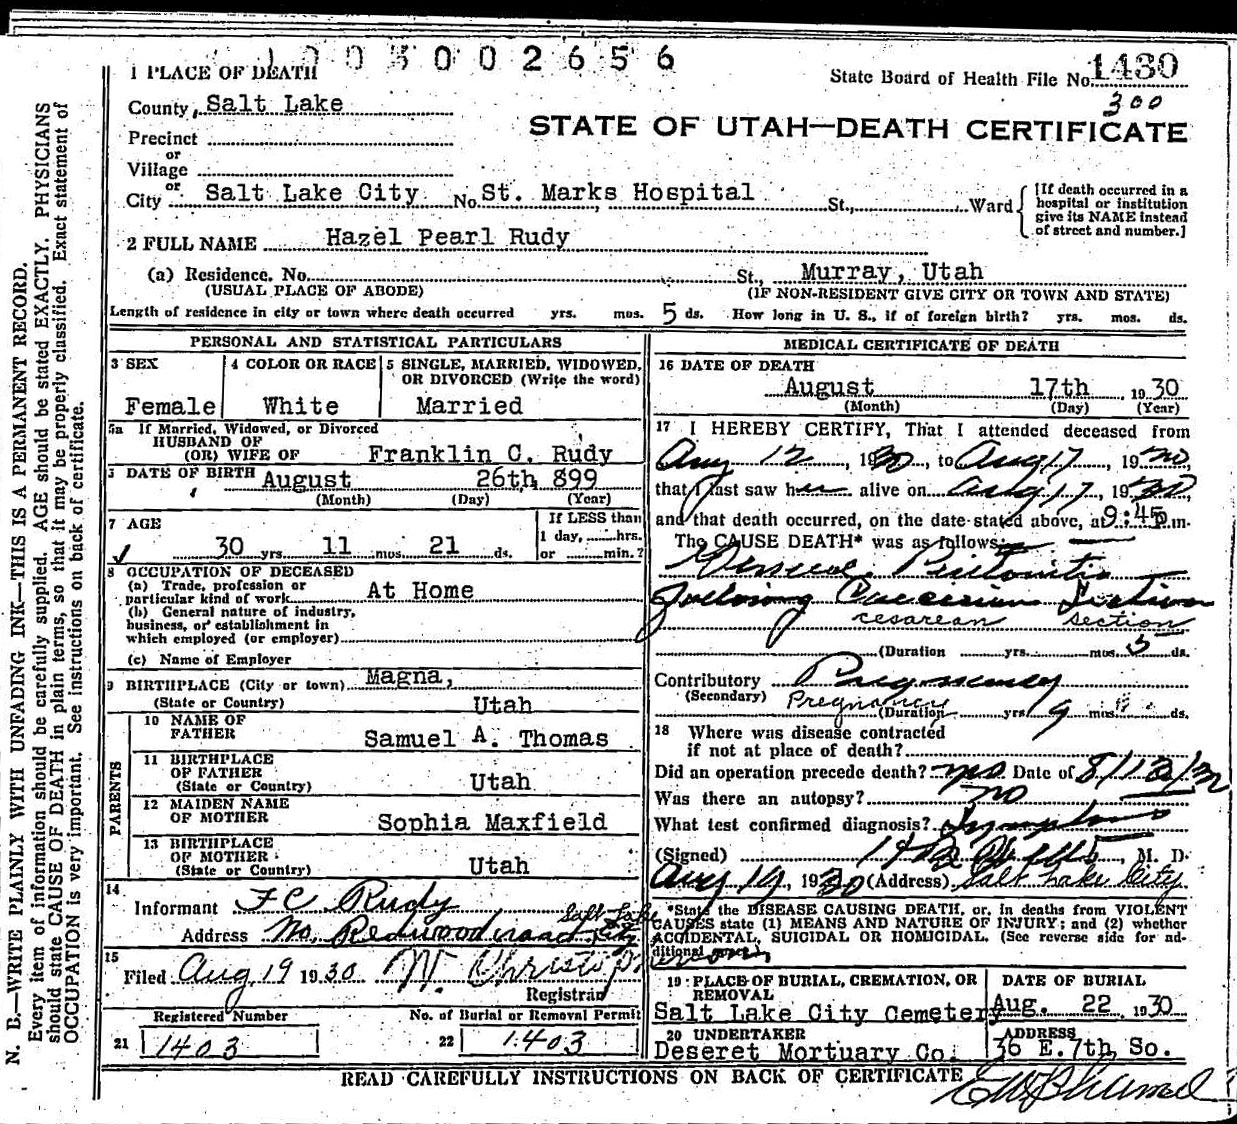 1 0 0 3 0 0 2 6 5 6
1 PLACE OF DEATH
State Board of Health File No. 1430
300
County, Salt Lake
STATE OF UTAH—DEATH CERTIFICATE
Precinct
or
Village
or
City Salt Lake City No. St. Marks Hospital St., Ward
[If death occurred in a
hospital or institution
give its NAME instead
of street and number.]
2 FULL NAME Hazel Pearl Rudy
(a) Residence. No. St., Murray, Utah
(USUAL PLACE OF ABODE) (IF NON-RESIDENT GIVE CITY OR TOWN AND STATE)
Length of residence in city or town where death occurred yrs. mos. 5 ds. How long in U. S., if of foreign birth? yrs. mos. ds.
PERSONAL AND STATISTICAL PARTICULARS
3 SEX 4 COLOR OR RACE 5 SINGLE, MARRIED, WIDOWED,
OR DIVORCED (Write the word)
Female White Married
5a If Married, Widowed, or Divorced
HUSBAND OF
(OR) WIFE OF Franklin C. Rudy
DATE OF BIRTH August 26th 899
(Month) (Day) (Year)
7 AGE If LESS than
1 day, hrs.
30 yrs. 11 mos. 21 ds. or min.?
8 OCCUPATION OF DECEASED
(a) Trade, profession or
particular kind of work At Home
(b) General nature of industry,
business, or establishment in
which employed (or employer)
(c) Name of Employer
9 BIRTHPLACE (City or town) Magna,
(State or Country) Utah
PARENTS
10 NAME OF
FATHER Samuel A. Thomas
11 BIRTHPLACE
OF FATHER
(State or Country) Utah
12 MAIDEN NAME
OF MOTHER Sophia Maxfield
13 BIRTHPLACE
OF MOTHER
(State or Country) Utah
14
Informant F C Rudy
Address No. Redwood road Salt Lake City
15
Filed Aug 19 1930 W. Christopherson
Registrar
Registered Number No. of Burial or Removal Permit
21 1403 22 1403
MEDICAL CERTIFICATE OF DEATH
16 DATE OF DEATH
August 17th 1930
(Month) (Day) (Year)
17 I HEREBY CERTIFY, That I attended deceased from
Aug 12, 1930, to Aug 17, 1930
that I last saw her alive on Aug 17, 1930,
and that death occurred, on the date stated above, at 9:45 P.m.
The CAUSE DEATH* was as follows:
General Peritonitis
following Caecerian Section
cesarean section
(Duration yrs. mos. 5 ds.
Contributory Pregnancy
(Secondary) Pregnancy
(Duration yrs. 9 mos. ds.
18 Where was disease contracted
if not at place of death?
Did an operation precede death? yes Date of 8/12/30
Was there an autopsy? no
What test confirmed diagnosis? Symptoms
(Signed) M. D.
Aug 19, 1930 (Address) Salt Lake City
*State the DISEASE CAUSING DEATH, or, in deaths from VIOLENT
CAUSES state (1) MEANS AND NATURE OF INJURY; and (2) whether
ACCIDENTAL, SUICIDAL OR HOMICIDAL. (See reverse side for ad-
ditional space.)
19 PLACE OF BURIAL, CREMATION, OR
REMOVAL
Salt Lake City Cemetery
DATE OF BURIAL
Aug. 22, 1930
20 UNDERTAKER
Deseret Mortuary Co.
ADDRESS
36 E. 7th So.
READ CAREFULLY INSTRUCTIONS ON BACK OF CERTIFICATE
N. B.—WRITE PLAINLY WITH UNFADING INK—THIS IS A PERMANENT RECORD.
Every item of information should be carefully supplied. AGE should be stated EXACTLY. PHYSICIANS
should state CAUSE OF DEATH in plain terms, so that it may be properly classified. Exact statement of
OCCUPATION is very important. See instructions on back of certificate.